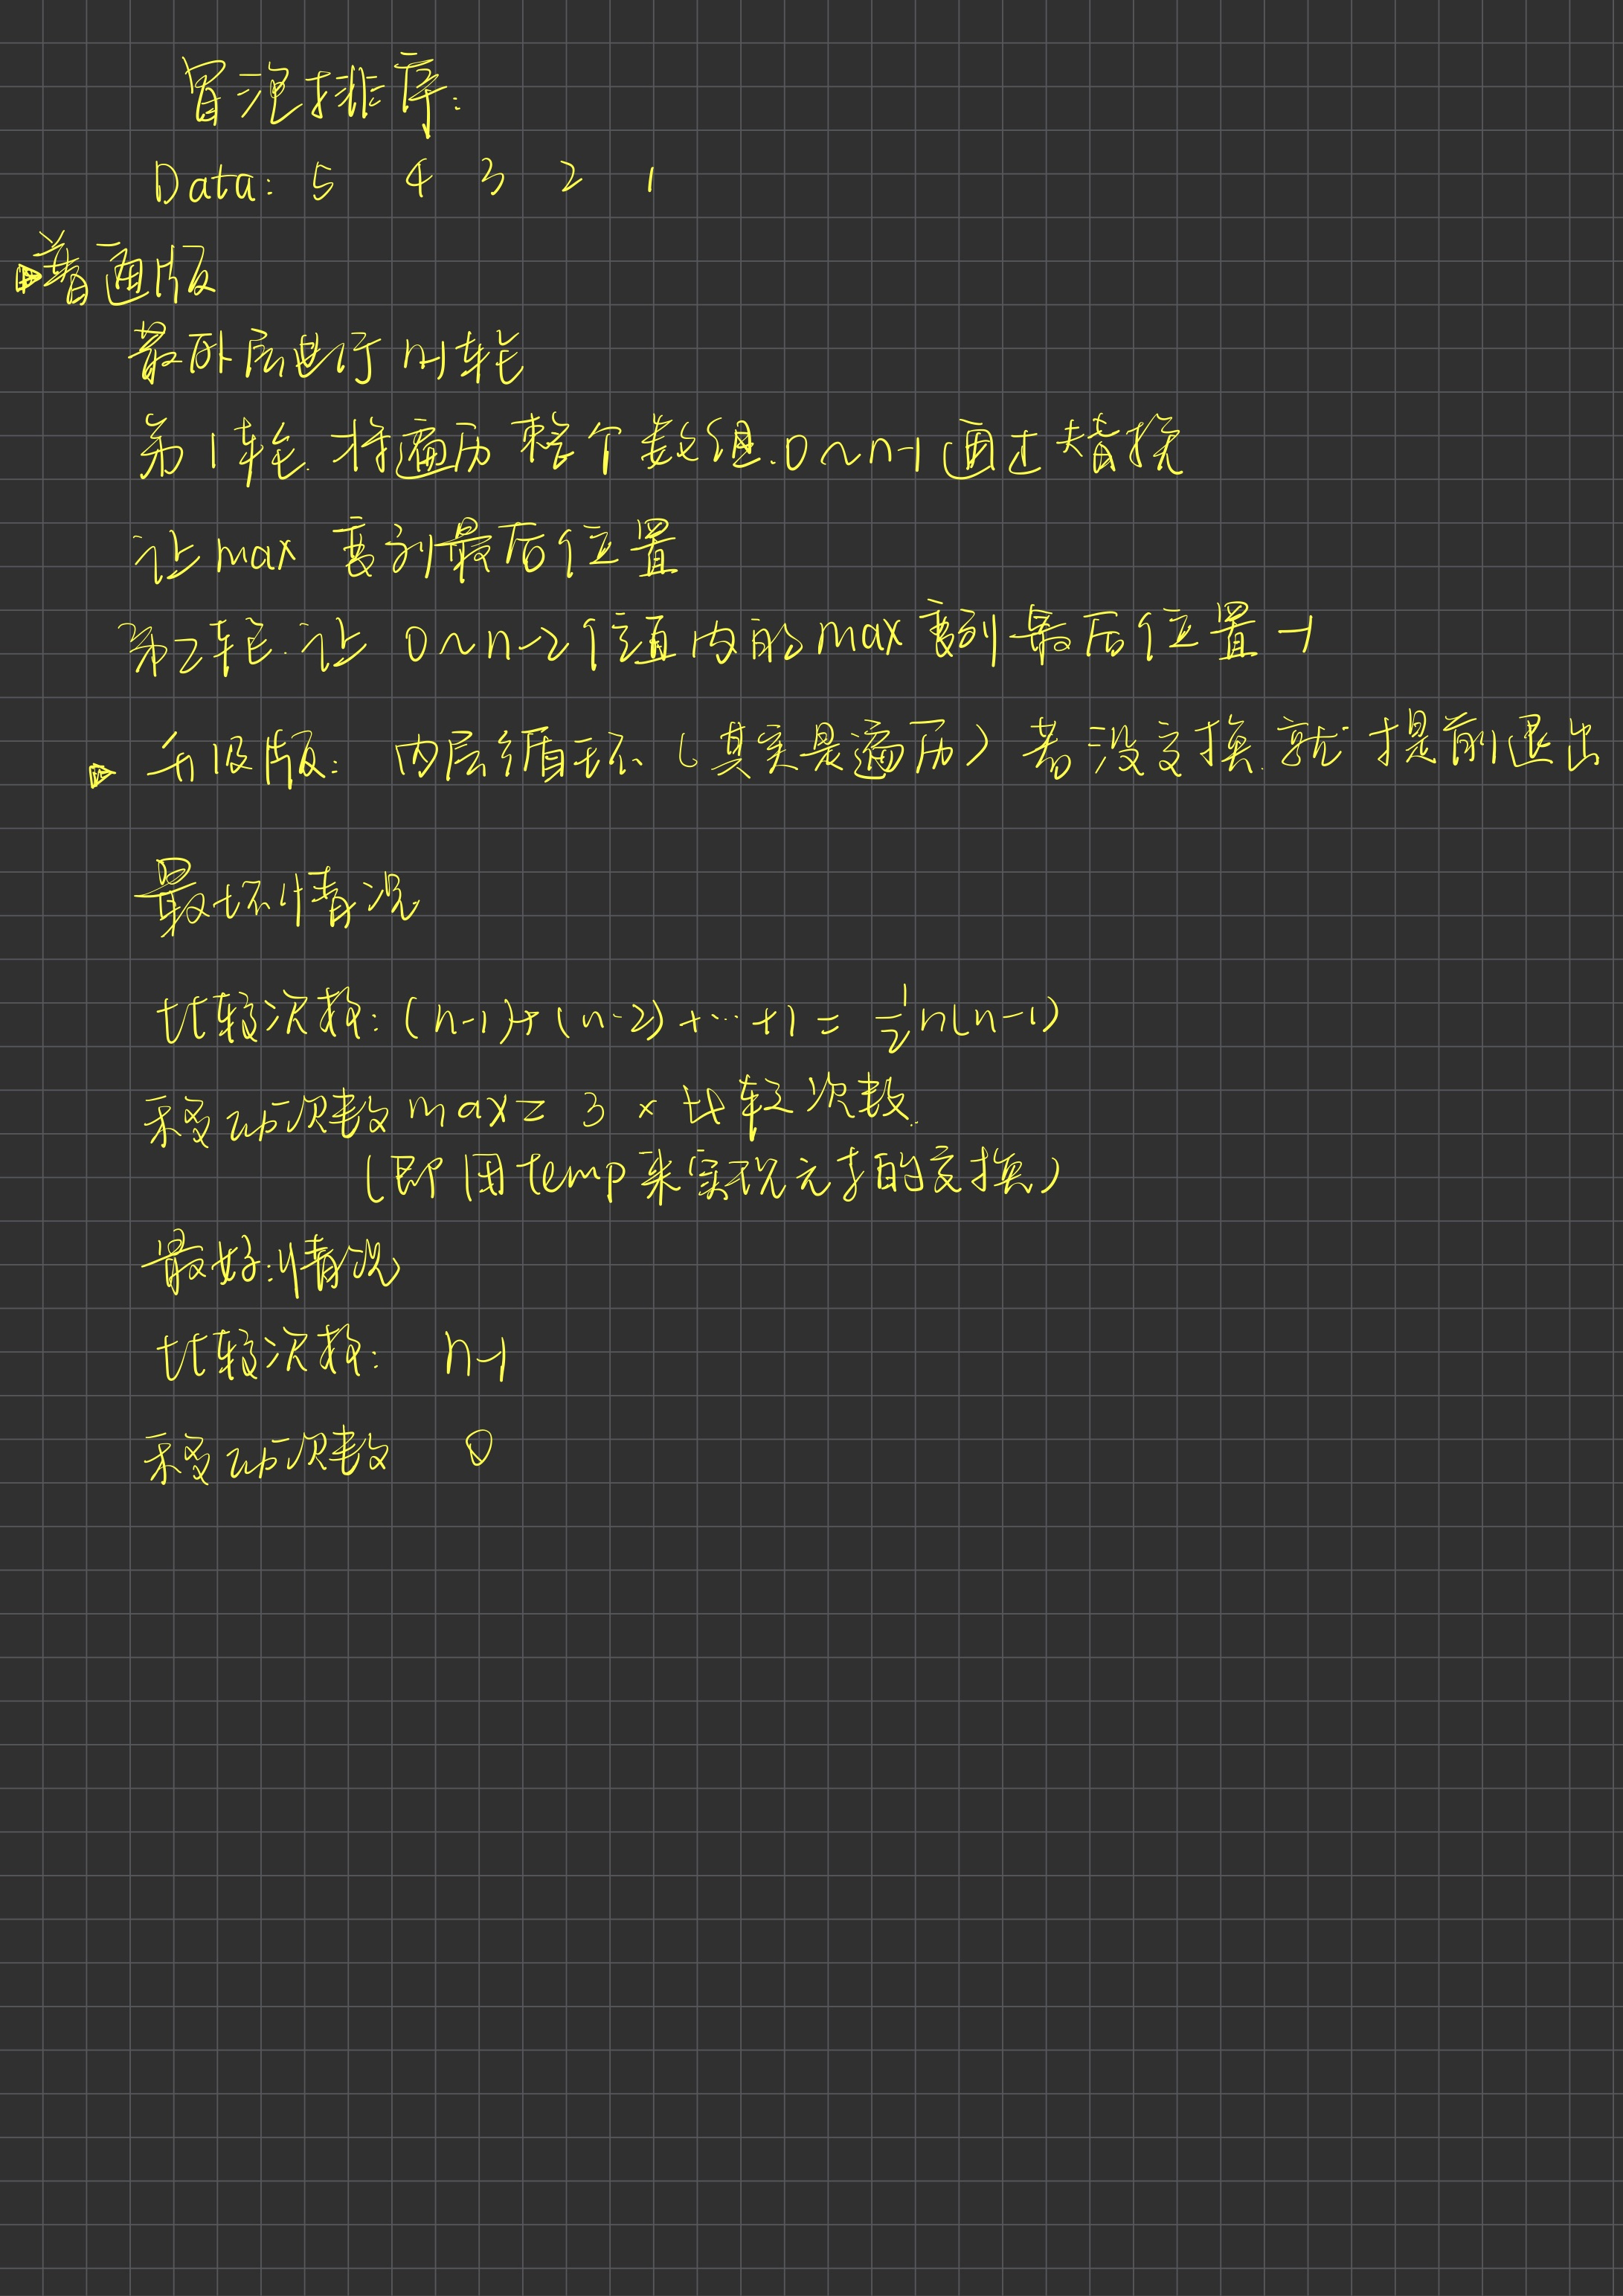 冒泡排序:
Data: 5 4 3 2 1
普通版
最外层进行 n-1轮
第1轮.将遍历整个数组.0~n-1通过替换
让max 要到最后位置
第2轮.让 0~n-2位置内的max要到最后位置-1
升级版: 内层循环(其实是遍历)若没交换.就提前退出
最坏情况
比较次数:(n-1)+(n-2)+...+1=1/2n(n-1)
移动次数max= 3 × 比较次数.
(即用temp来实现元素的交换)
最好:情况
比较次数: n-1
移动次数 0